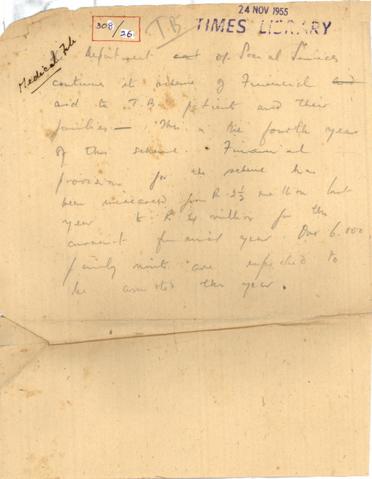 24 NOV 1955
308/26
T.B
TIMES LIBRARY
Medical File
Department of Social Services
continues its scheme of Financial
aid to T.B. patient and their
families — This is the fourth year
of this scheme. Financial
provision for the scheme has
been increased from R 2½ million last
year to R 4 million for the
current financial year. Over 6,000
family units are expected to
be assisted this year.